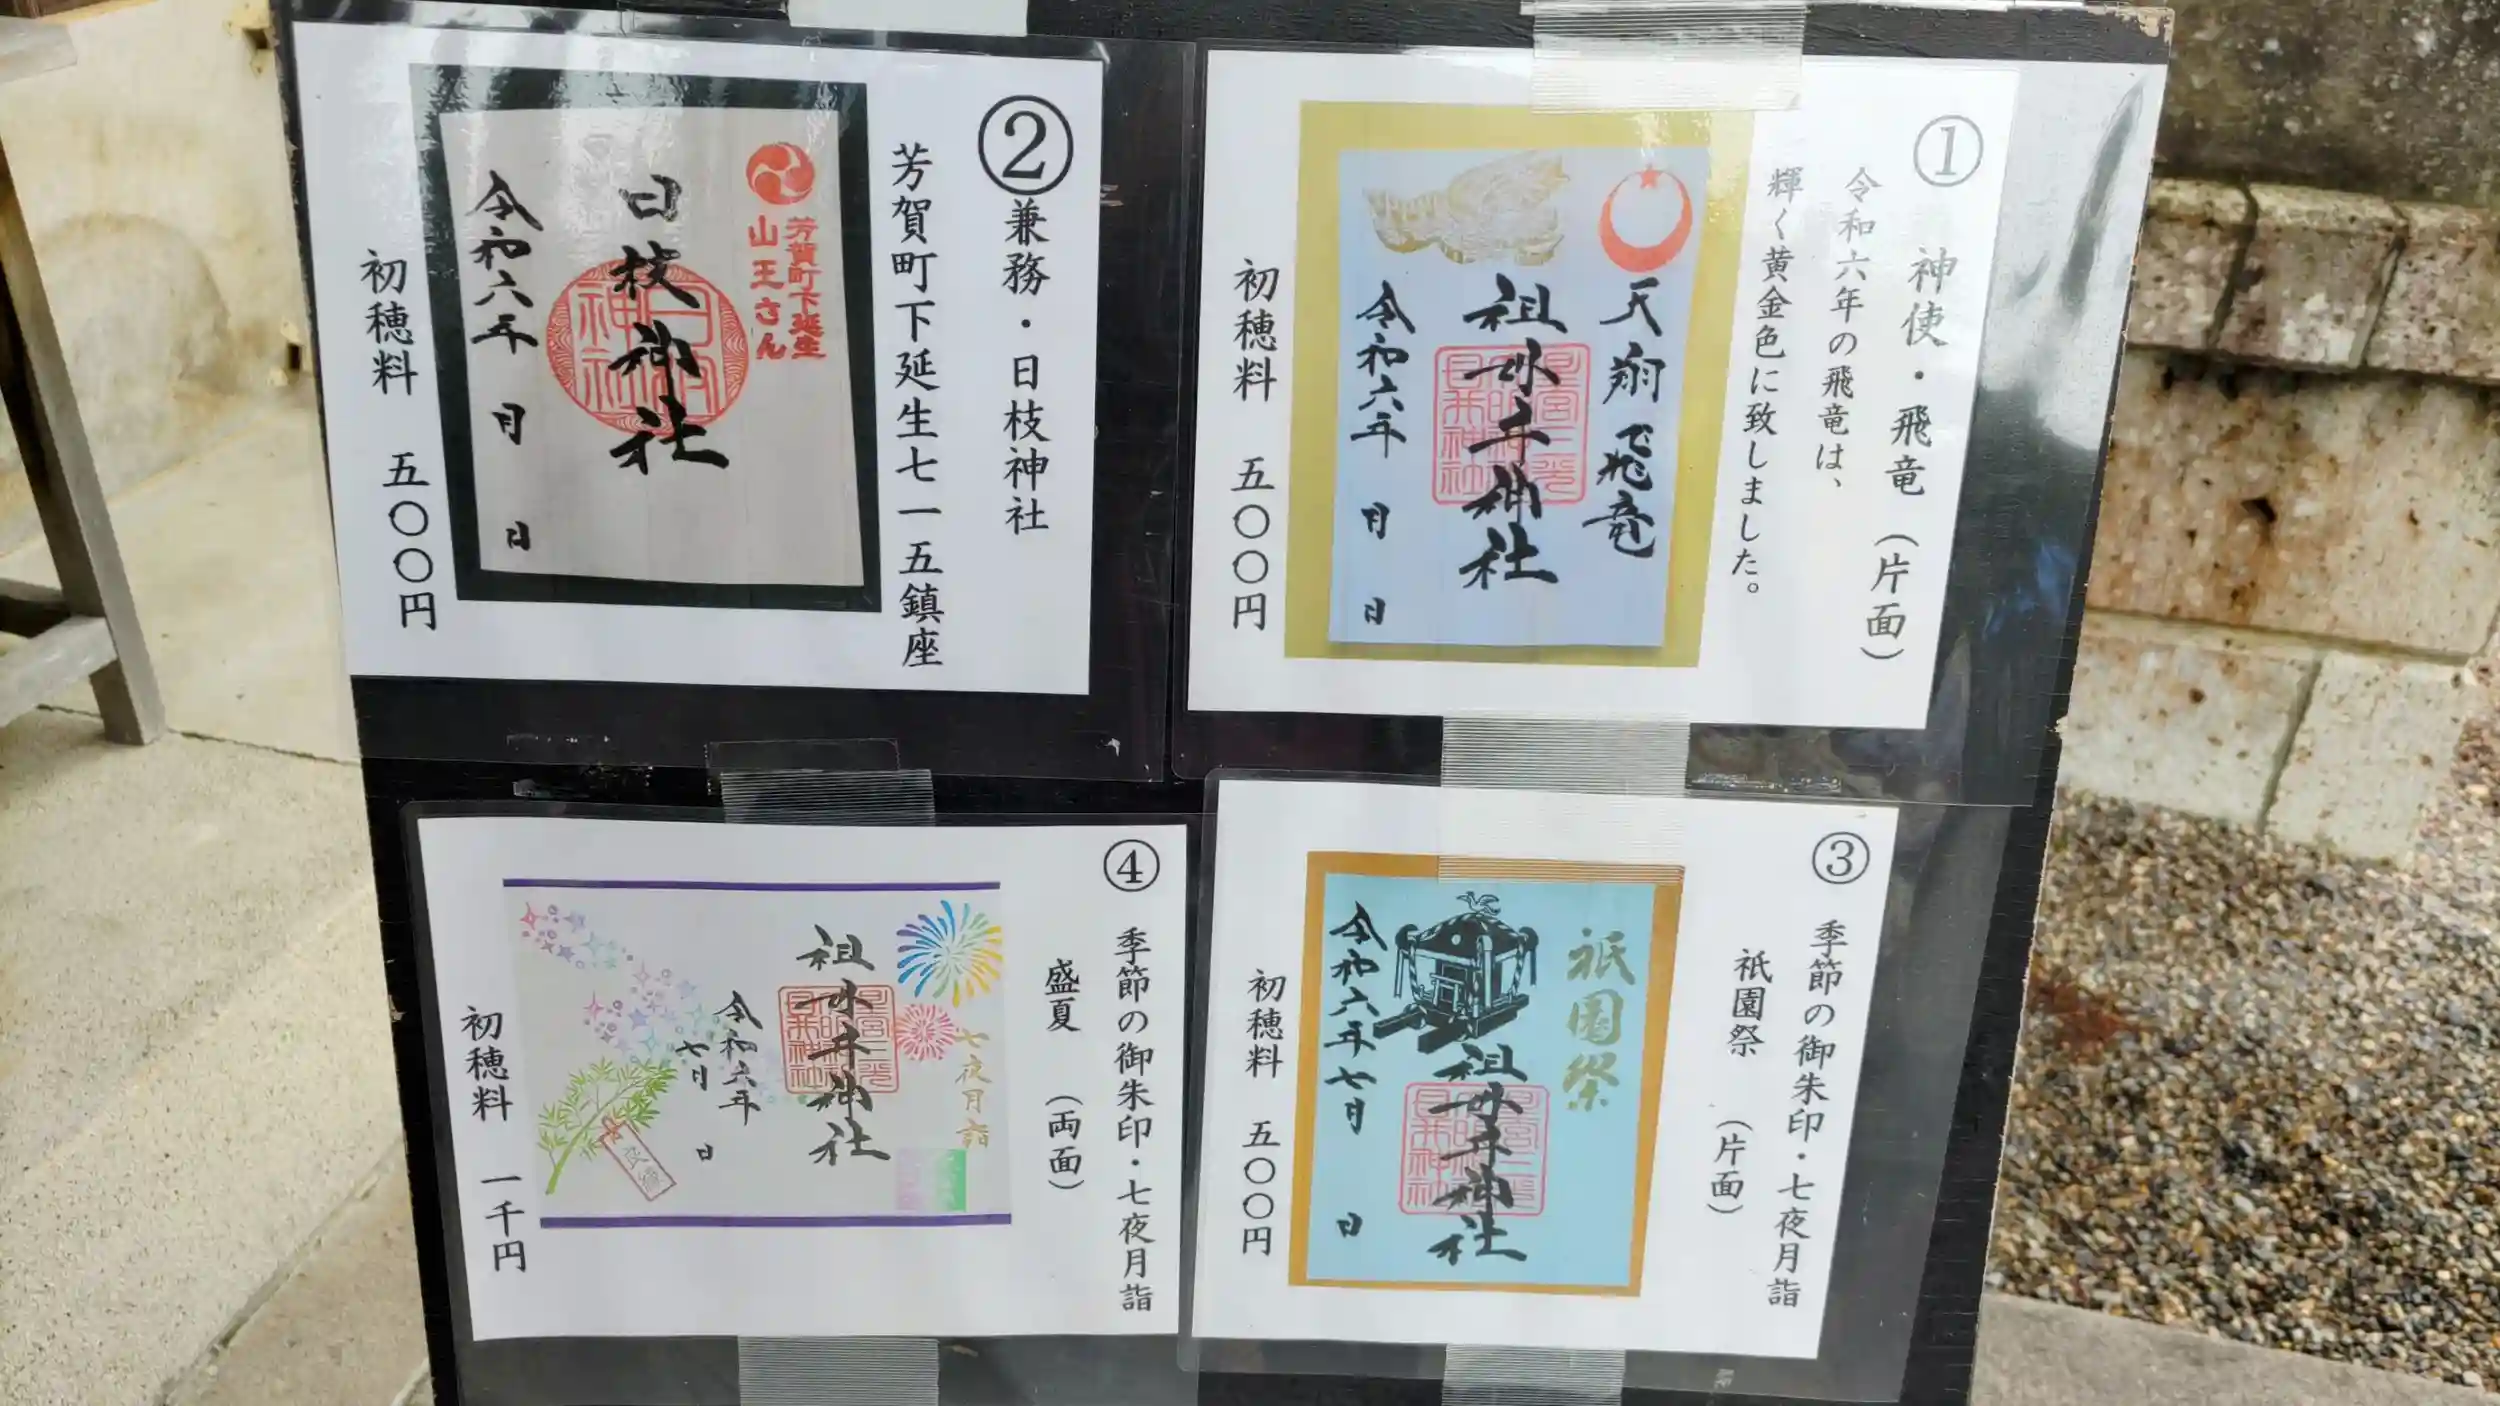 ①
神使・飛竜 (片面)
令和六年の飛竜は、
輝く黄金色に致しました。
天翔 飛竜
祖母井神社
令和六年 月 日
初穂料 五〇〇円
②
兼務・日枝神社
芳賀町下延生七一五鎮座
芳賀町下延生
山王さん
日枝神社
令和六年 月 日
初穂料 五〇〇円
③
季節の御朱印・七夜月詣
祇園祭 (片面)
祇園祭
祖母井神社
令和六年七月 日
初穂料 五〇〇円
④
季節の御朱印・七夜月詣
盛夏 (両面)
七夜月詣
祖母井神社
令和六年
七月 日
良縁
初穂料 一千円